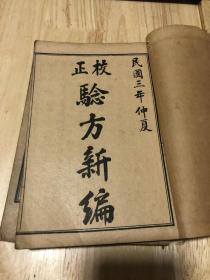 民國三年仲夏
校正
驗方新編